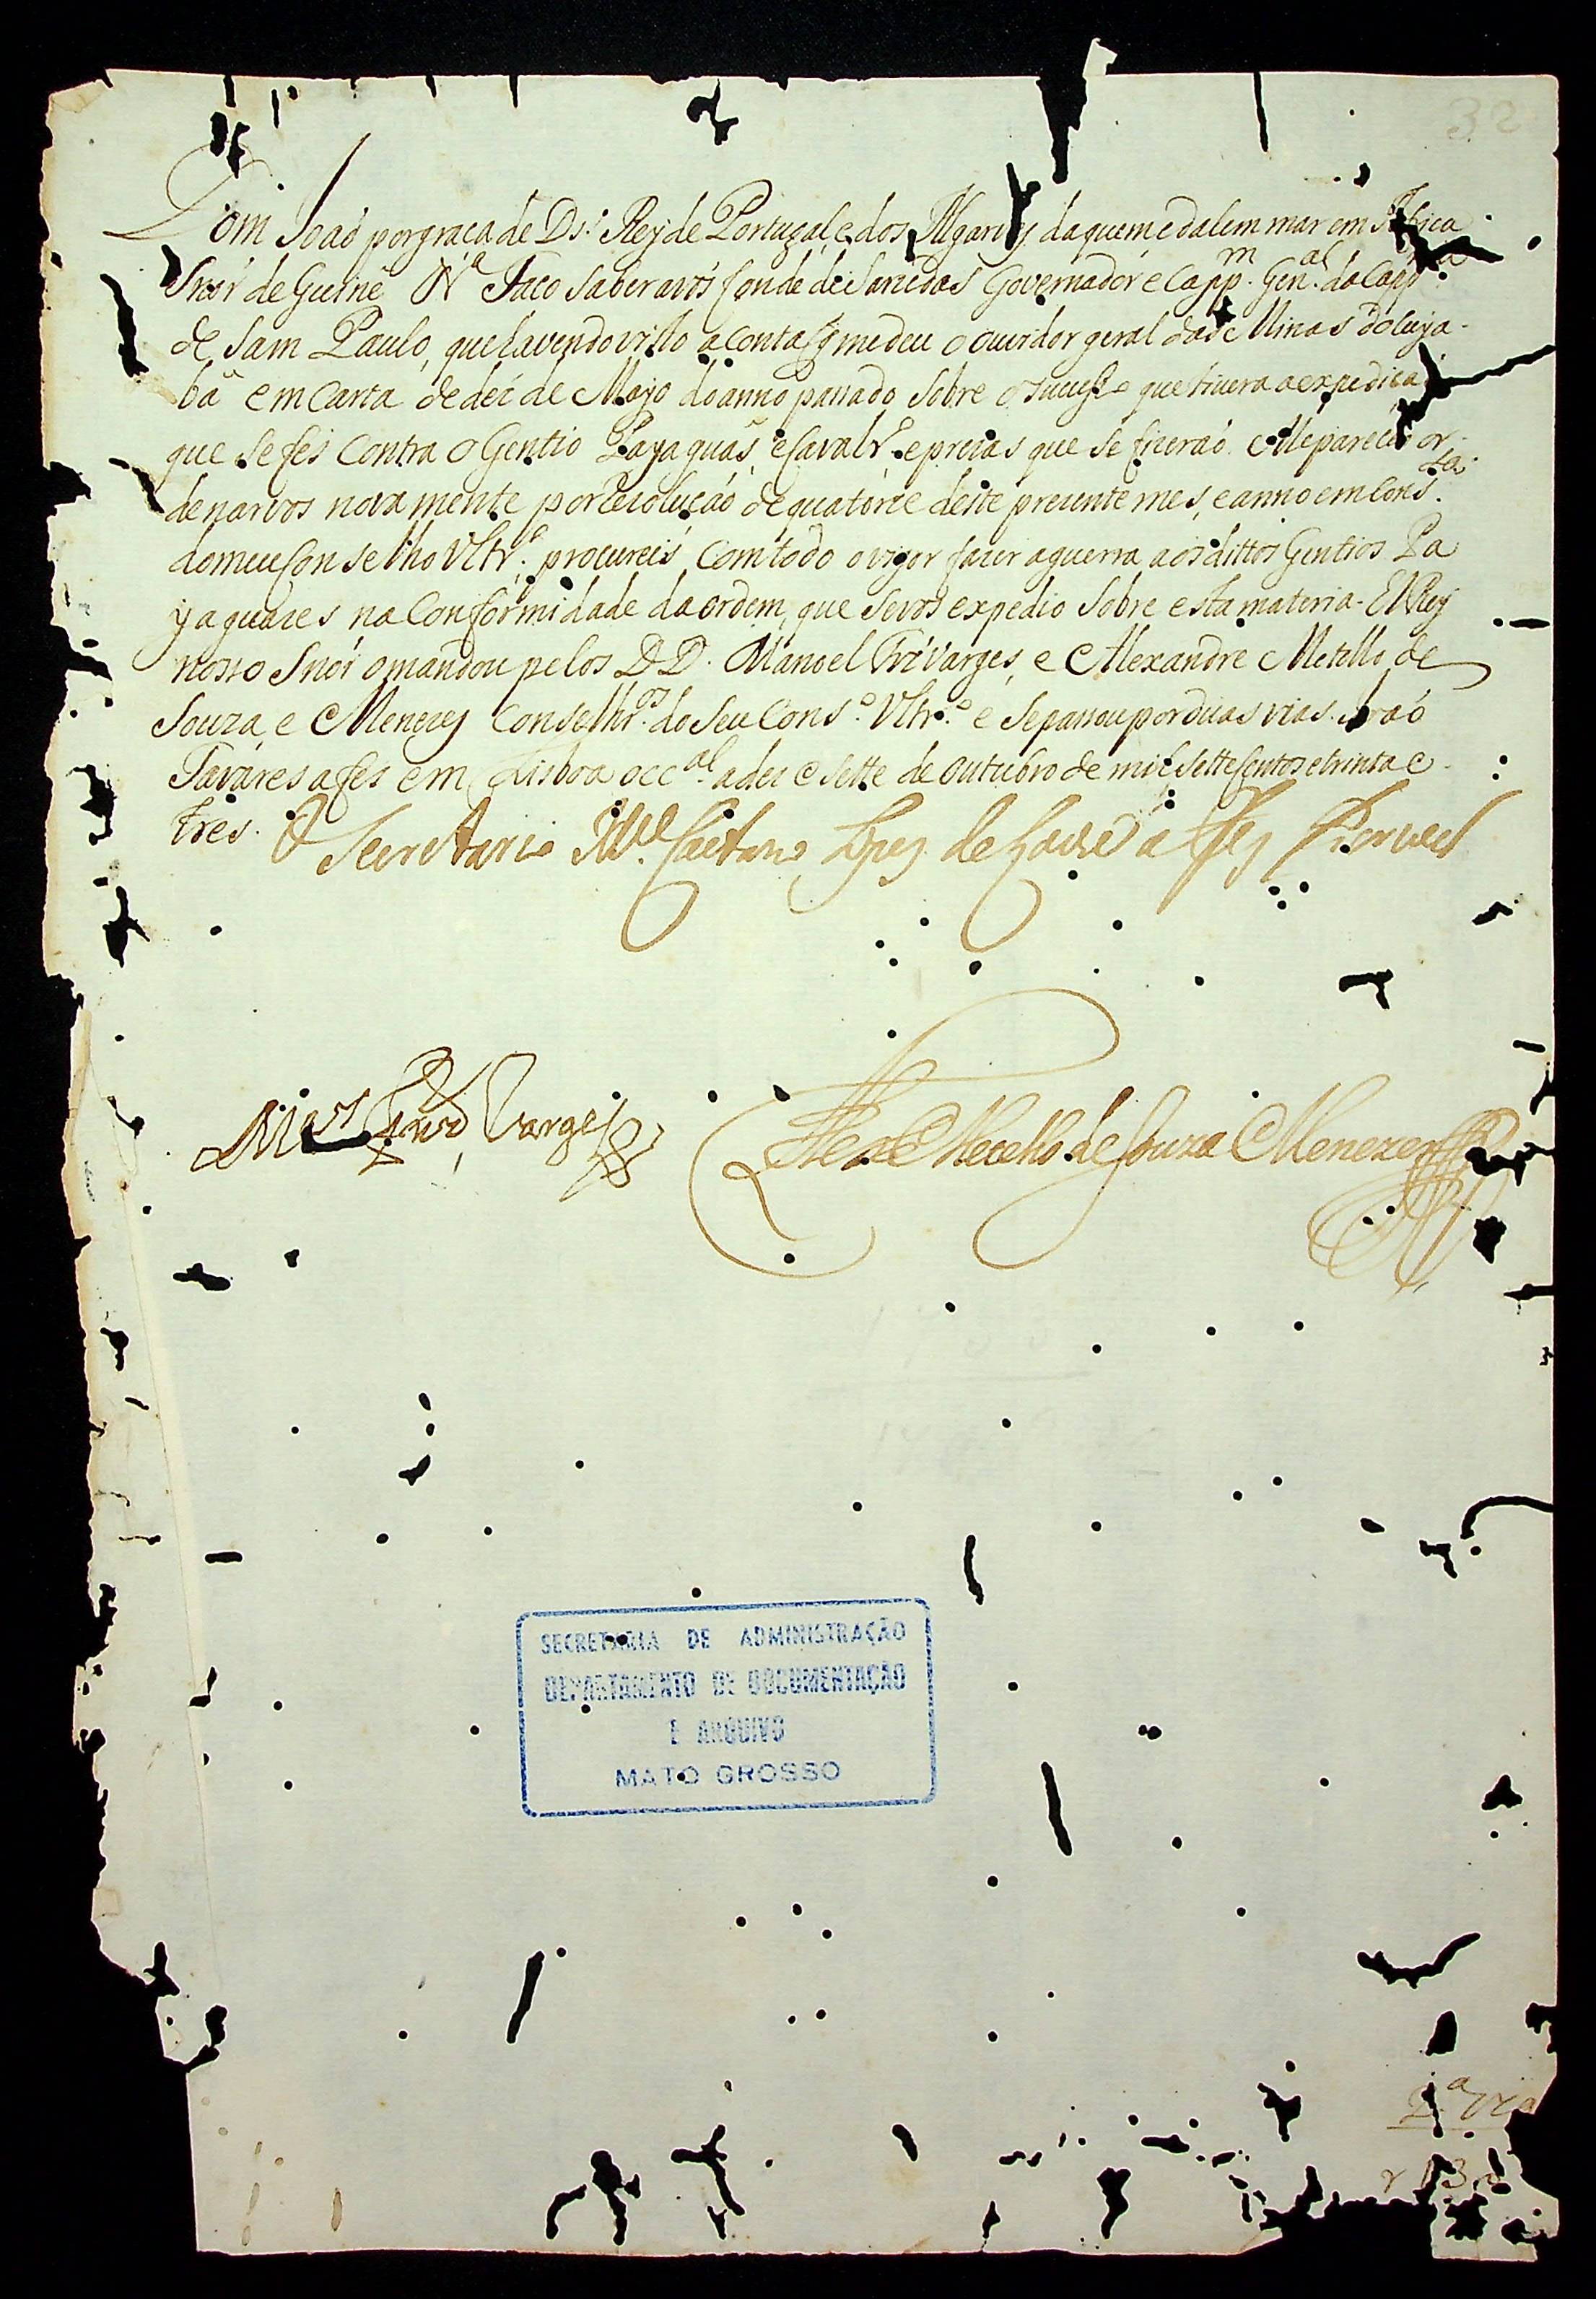 32
Dom João por graça de Ds.' Rey de Portugal, e dos Algarves, daquem e dalem mar em Africa
Snór de Guiné &a Faço saber a vós Conde de Sarzedas Governador e Capp.m Gen.al da Capp.nia
de Sam Paulo, que havendo visto a conta q̃ me deu o ouvidor geral das Minas do Cuya-
bá em carta de dez de Mayo do anno passado sobre o sucesso que tivera a expediça
que se fes contra o Gentio Payaguás, e Cavalr.o e prezas que se fizeraó. Me pareceo or-
denarvos novamente por rezoluçaó de quatorze deste prezente mes, e anno em Cons.ta
do meu Conselho Vltr.o procureis com todo o vigor fazer a guerra aos dittos Gentios Pa
yaguazes na conformidade da ordem, que se vos expedio sobre esta materia. ElRey
nosso Snór o mandou pelos DD. Manoel Frz' Varges, e Alexandre Metello de
Souza, e Menezes Conselhr.os do seu Cons.o Vltr.o e se passou por duas vias. João
Tavares a fes em Lisboa occ.al a dez e sette de outubro de mil settecentos e trinta e
tres. O Secretario M.el Caetano Lopes de Lavre a fez escrever
M.el Frz Varges Alex.e Metello de Souza Menezes
SECRETARIA DE ADMINISTRAÇÃO
DEPARTAMENTO DE DOCUMENTAÇÃO
E ARQUIVO
MATO GROSSO
2.a via